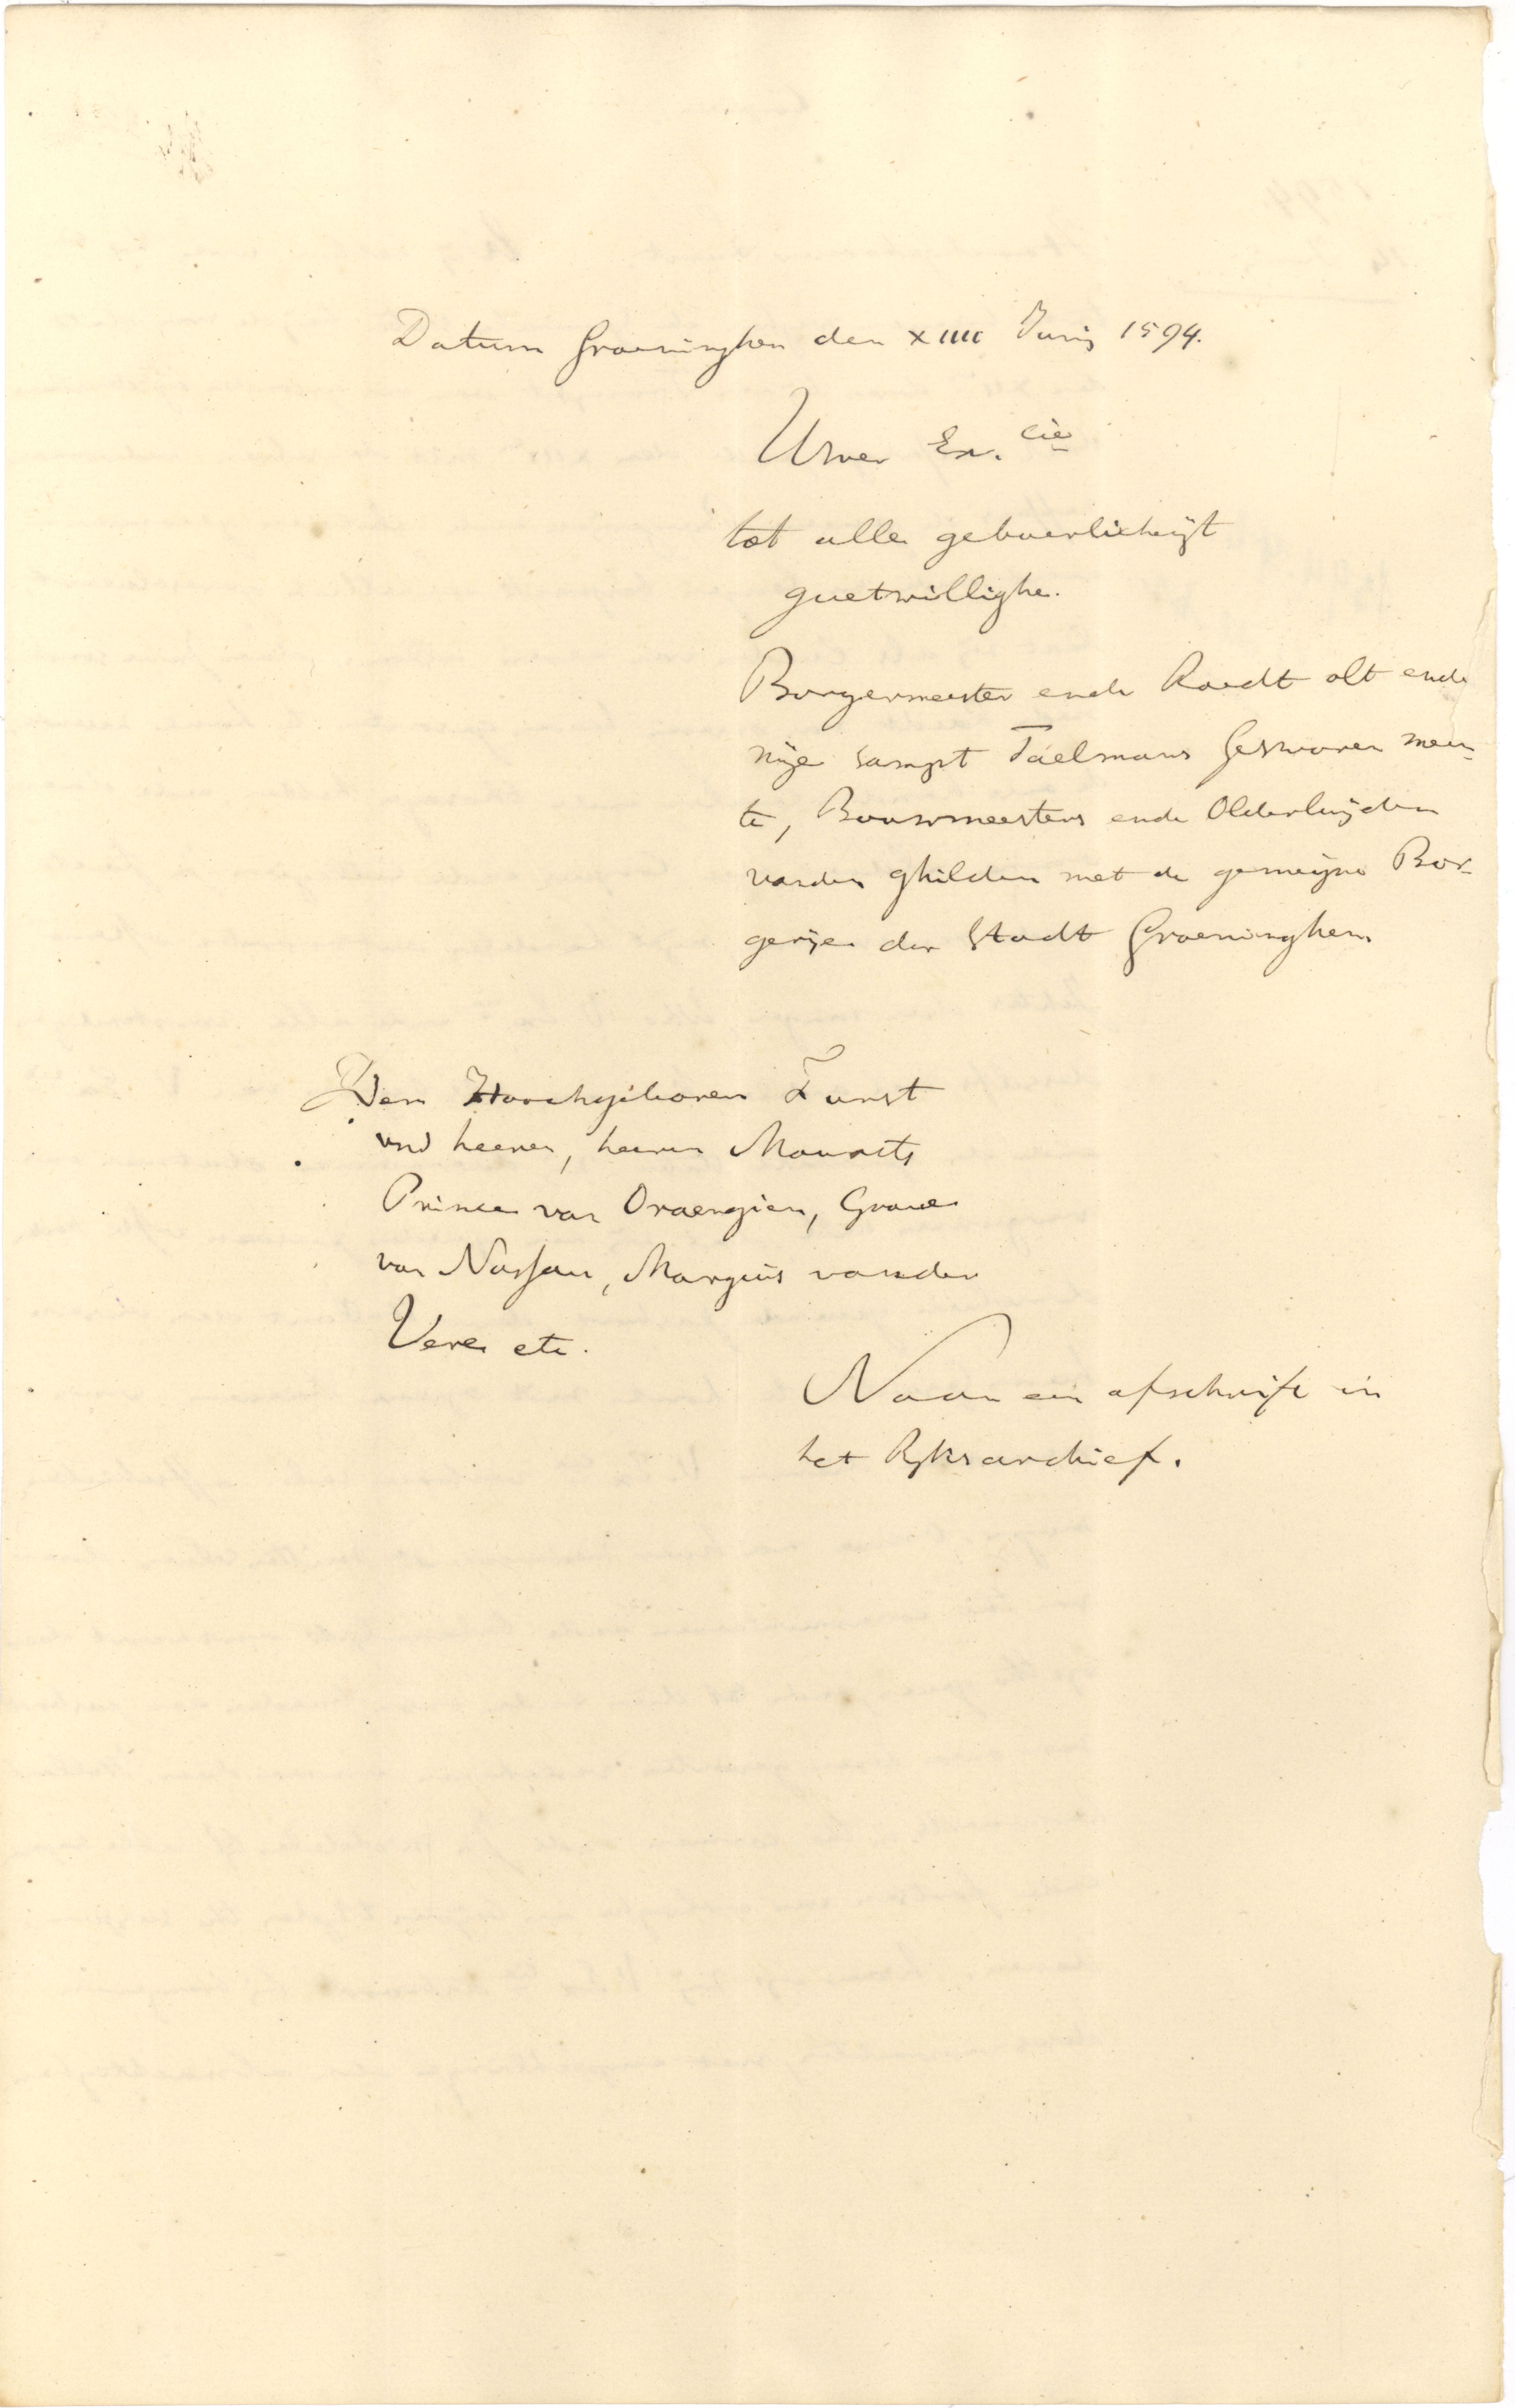 Datum Groeninghen den XIIII Junij 1594.
Uwer Ex.cie
tot alle gebuerlicheijt
guetwillighe.
Borgermeester ende Raedt olt ende
nije sampt Taelmans Gesworen meen-
te, Bouwmeesters ende Olderluijden
vanden ghilden met de gemeijne Bor-
gerije der Stadt Groeninghen
Den Hoochgeboren Furst
und heeren, heeren Maurits
Prince van Oraengien, Grave
van Nassau, Marquis vander
Vere etc.
Naar een afschrift in
het Rijksarchief.